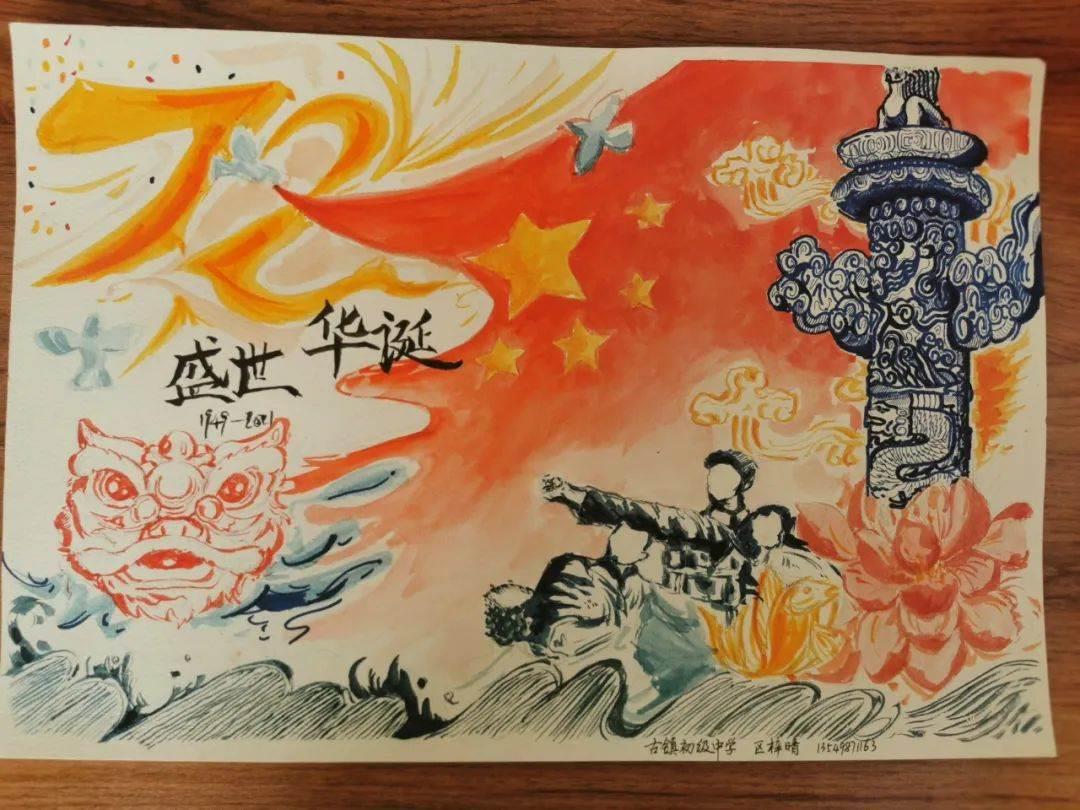 72
盛世 华诞
1949-2021
古镇初级中学 区梓晴 13549871163